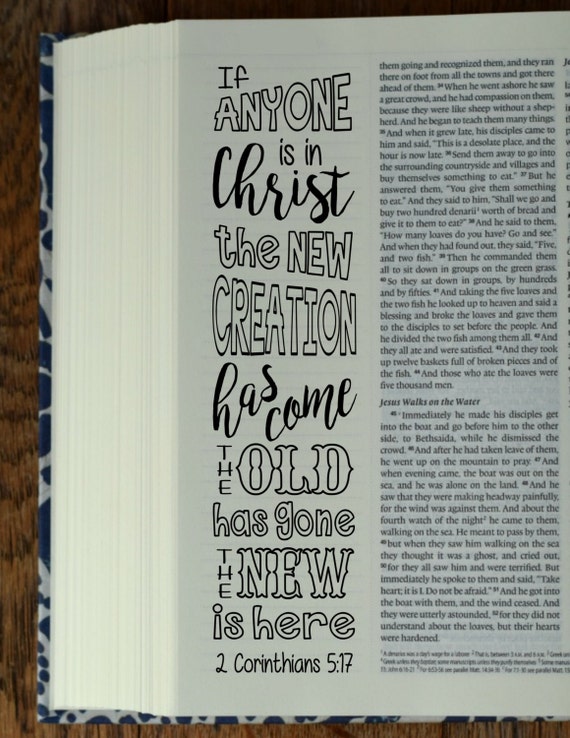 If
ANYONE
is in
Christ
the NEW
CREATION
has
come
THE OLD
has gone
THE NEW
is here
2 Corinthians 5:17
them going and recognized them, and they ran
there on foot from all the towns and got there
ahead of them. 34 When he went ashore he saw
a great crowd, and he had compassion on them,
because they were like sheep without a shep-
herd. And he began to teach them many things.
35 And when it grew late, his disciples came to
him and said, "This is a desolate place, and the
hour is now late. 36 Send them away to go into
the surrounding countryside and villages and
buy themselves something to eat." 37 But he
answered them, "You give them something
to eat." And they said to him, "Shall we go and
buy two hundred denarii1 worth of bread and
give it to them to eat?" 38 And he said to them,
"How many loaves do you have? Go and see."
And when they had found out, they said, "Five,
and two fish." 39 Then he commanded them
all to sit down in groups on the green grass.
40 So they sat down in groups, by hundreds
and by fifties. 41 And taking the five loaves and
the two fish he looked up to heaven and said a
blessing and broke the loaves and gave them
to the disciples to set before the people. And
he divided the two fish among them all. 42 And
they all ate and were satisfied. 43 And they took
up twelve baskets full of broken pieces and of
the fish. 44 And those who ate the loaves were
five thousand men.
Jesus Walks on the Water
45 Immediately he made his disciples get
into the boat and go before him to the other
side, to Bethsaida, while he dismissed the
crowd. 46 And after he had taken leave of them,
he went up on the mountain to pray. 47 And
when evening came, the boat was out on the
sea, and he was alone on the land. 48 And he
saw that they were making headway painfully,
for the wind was against them. And about the
fourth watch of the night2 he came to them,
walking on the sea. He meant to pass by them,
49 but when they saw him walking on the sea
they thought it was a ghost, and cried out,
50 for they all saw him and were terrified. But
immediately he spoke to them and said, "Take
heart; it is I. Do not be afraid." 51 And he got into
the boat with them, and the wind ceased. And
they were utterly astounded, 52 for they did not
understand about the loaves, but their hearts
were hardened.
1 A denarius was a day's wage for a laborer 2 That is, between 3 A.M. and 6 A.M.